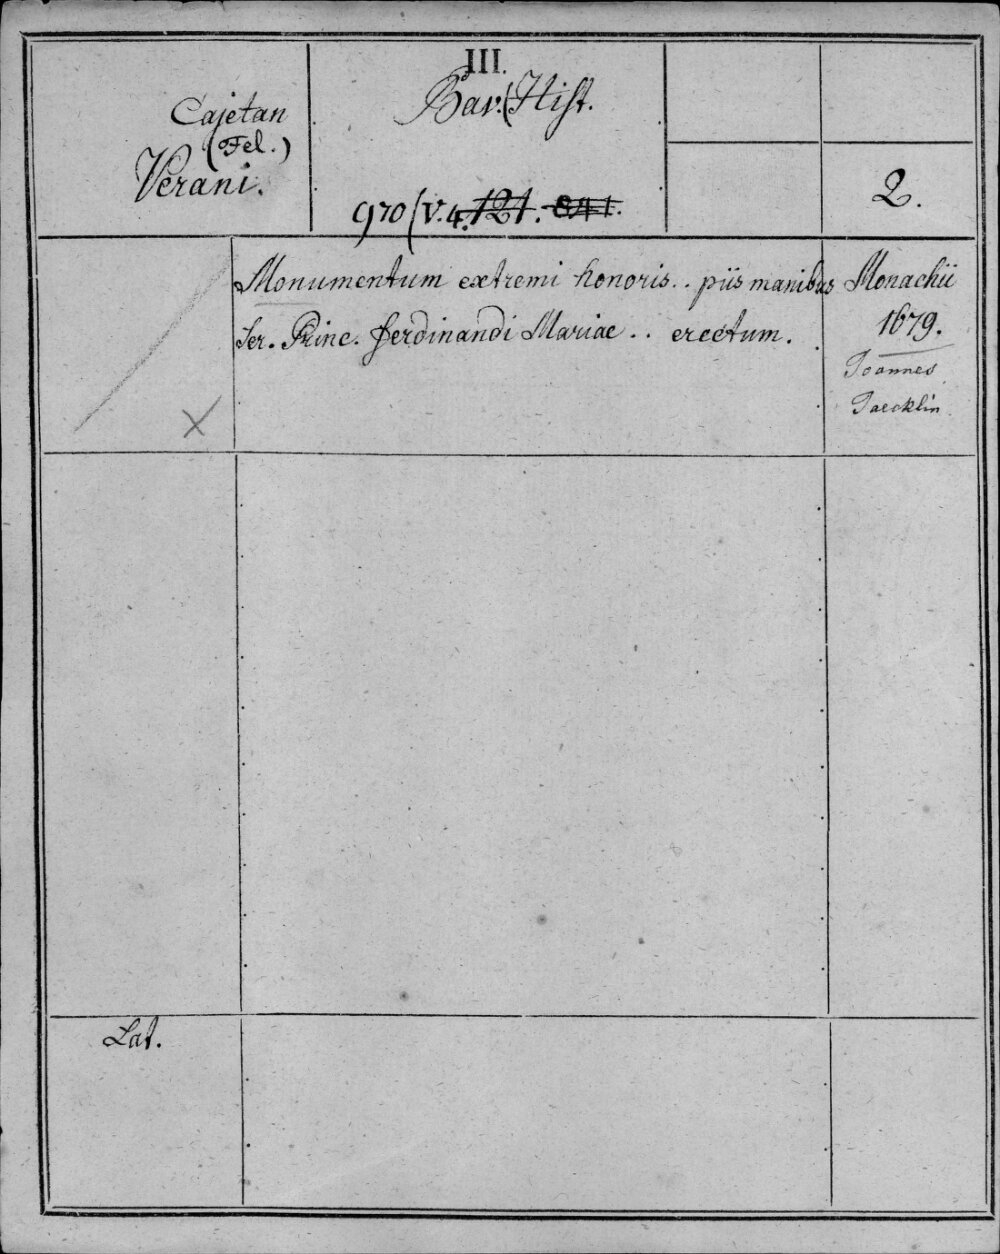 III.
Cajetan
(Fel.)
Verani.
Bav. (Hist.
970 (V. 4. 121. 841.
2.
Monumentum extremi honoris.. piis manibus
Ser. Princ. Ferdinandi Mariae .. erectum.
Monachii
1679.
Joannes
Jaecklin
X
Lat.